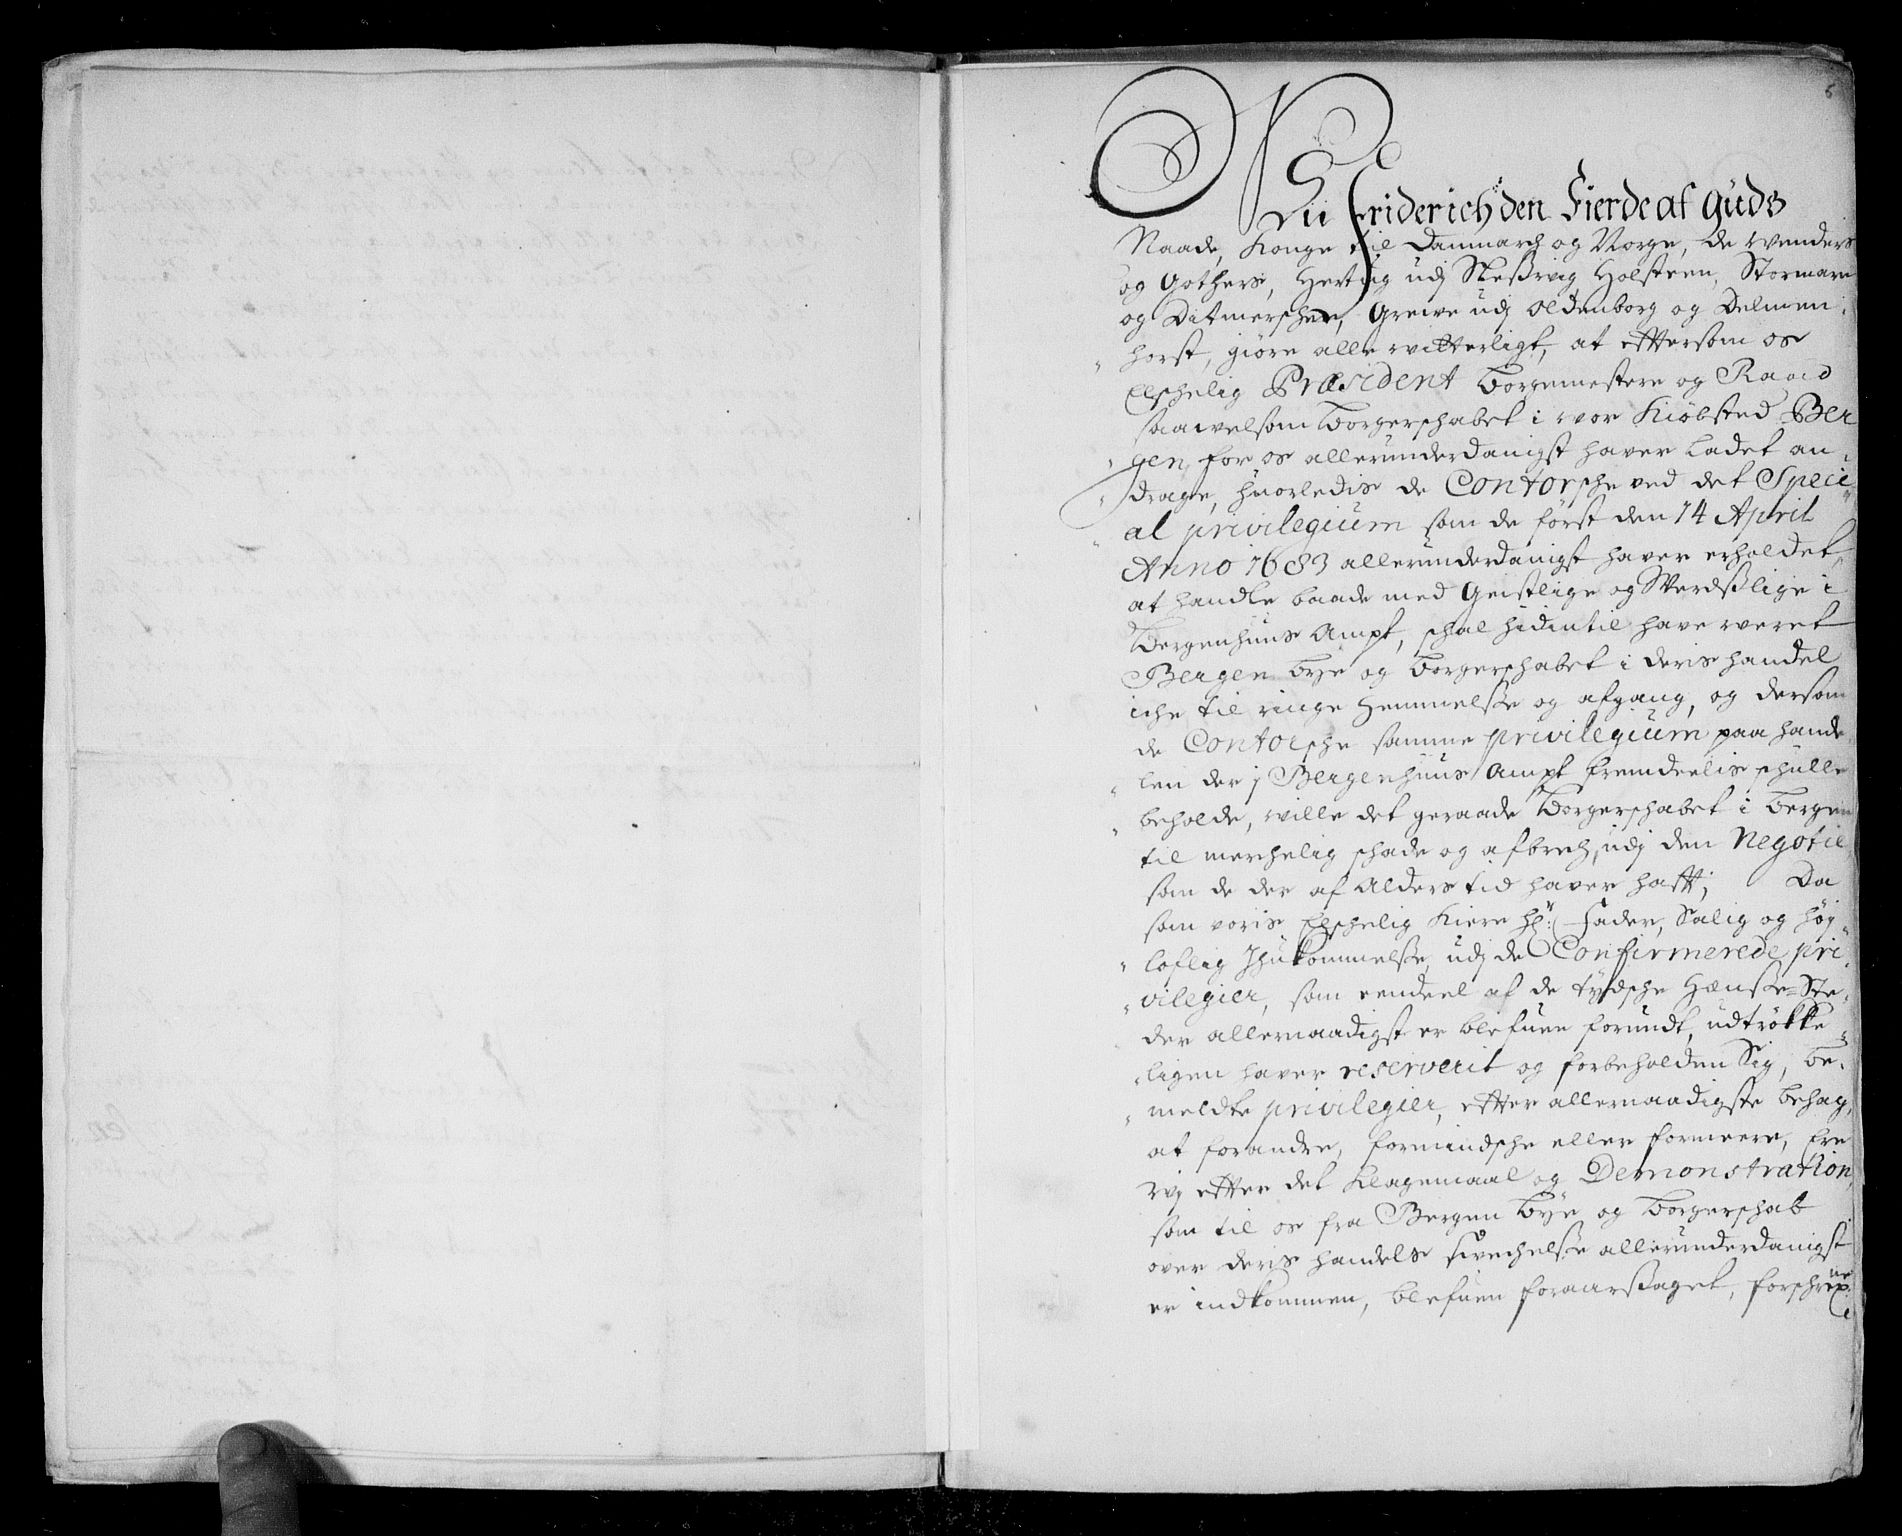 6
Wii Friderich den Fierde af Guds
Naade, Konge til Danmarch og Norge, de Wenders
og Gothers, Hertug udj Sleßwig Holsteen, Stormarn
og Ditmerschen, Grewe udj Oldenborg og Delmen-
horst, giøre alle witterligt, at eftersom os
Elschelig Præsident Borgemestere og Raad
saawelsom Borgerschabet i wor Kiøbsted Ber-
gen, for os allerunderdanigst haver ladet an-
drage, huorledis de Contorsche ved det Speci-
al privilegium som de først den 14 April
Anno 1683 allerunderdanigst haver erholdet,
at handle baade med Geistlige og Werdßlige i
Bergenhuus Ampt, schal hidintil have weret
Bergen Bye og Borgerschabet i deris handel
iche til ringe Hemmelße og afgang, og dersom
de Contorsche samme privilegium paa hande-
len der j Bergenhuus Ampt fremdeelis schulle
beholde, wille det geraade Borgerschabet i Bergen
til merchelig schade og afbrech, udj den Negotie
som de der af Alders tid haver hafft; Da
som voris Elschelig Kiere Hr: Fader, Salig og høj-
loflig Ihukommelße, udj de Confirmerede pri-
vilegier, som eendeel af de tydsche Hænße-Ste-
der allernaadigst er blefuen forundt, udtrøkke-
ligen haver reserverit og forbeholden Sig, be-
meldte privilegier, effter allernaadigste behag,
at forandre, formindsche eller formeere, Ere
Wj effter det Klagemaal og Demonstration,
som til os fra Bergen Bye og Borgerschab
over deris handels swechelße allerunderdanigst
er indkommen, blefuen foraarßaget, forschrefne